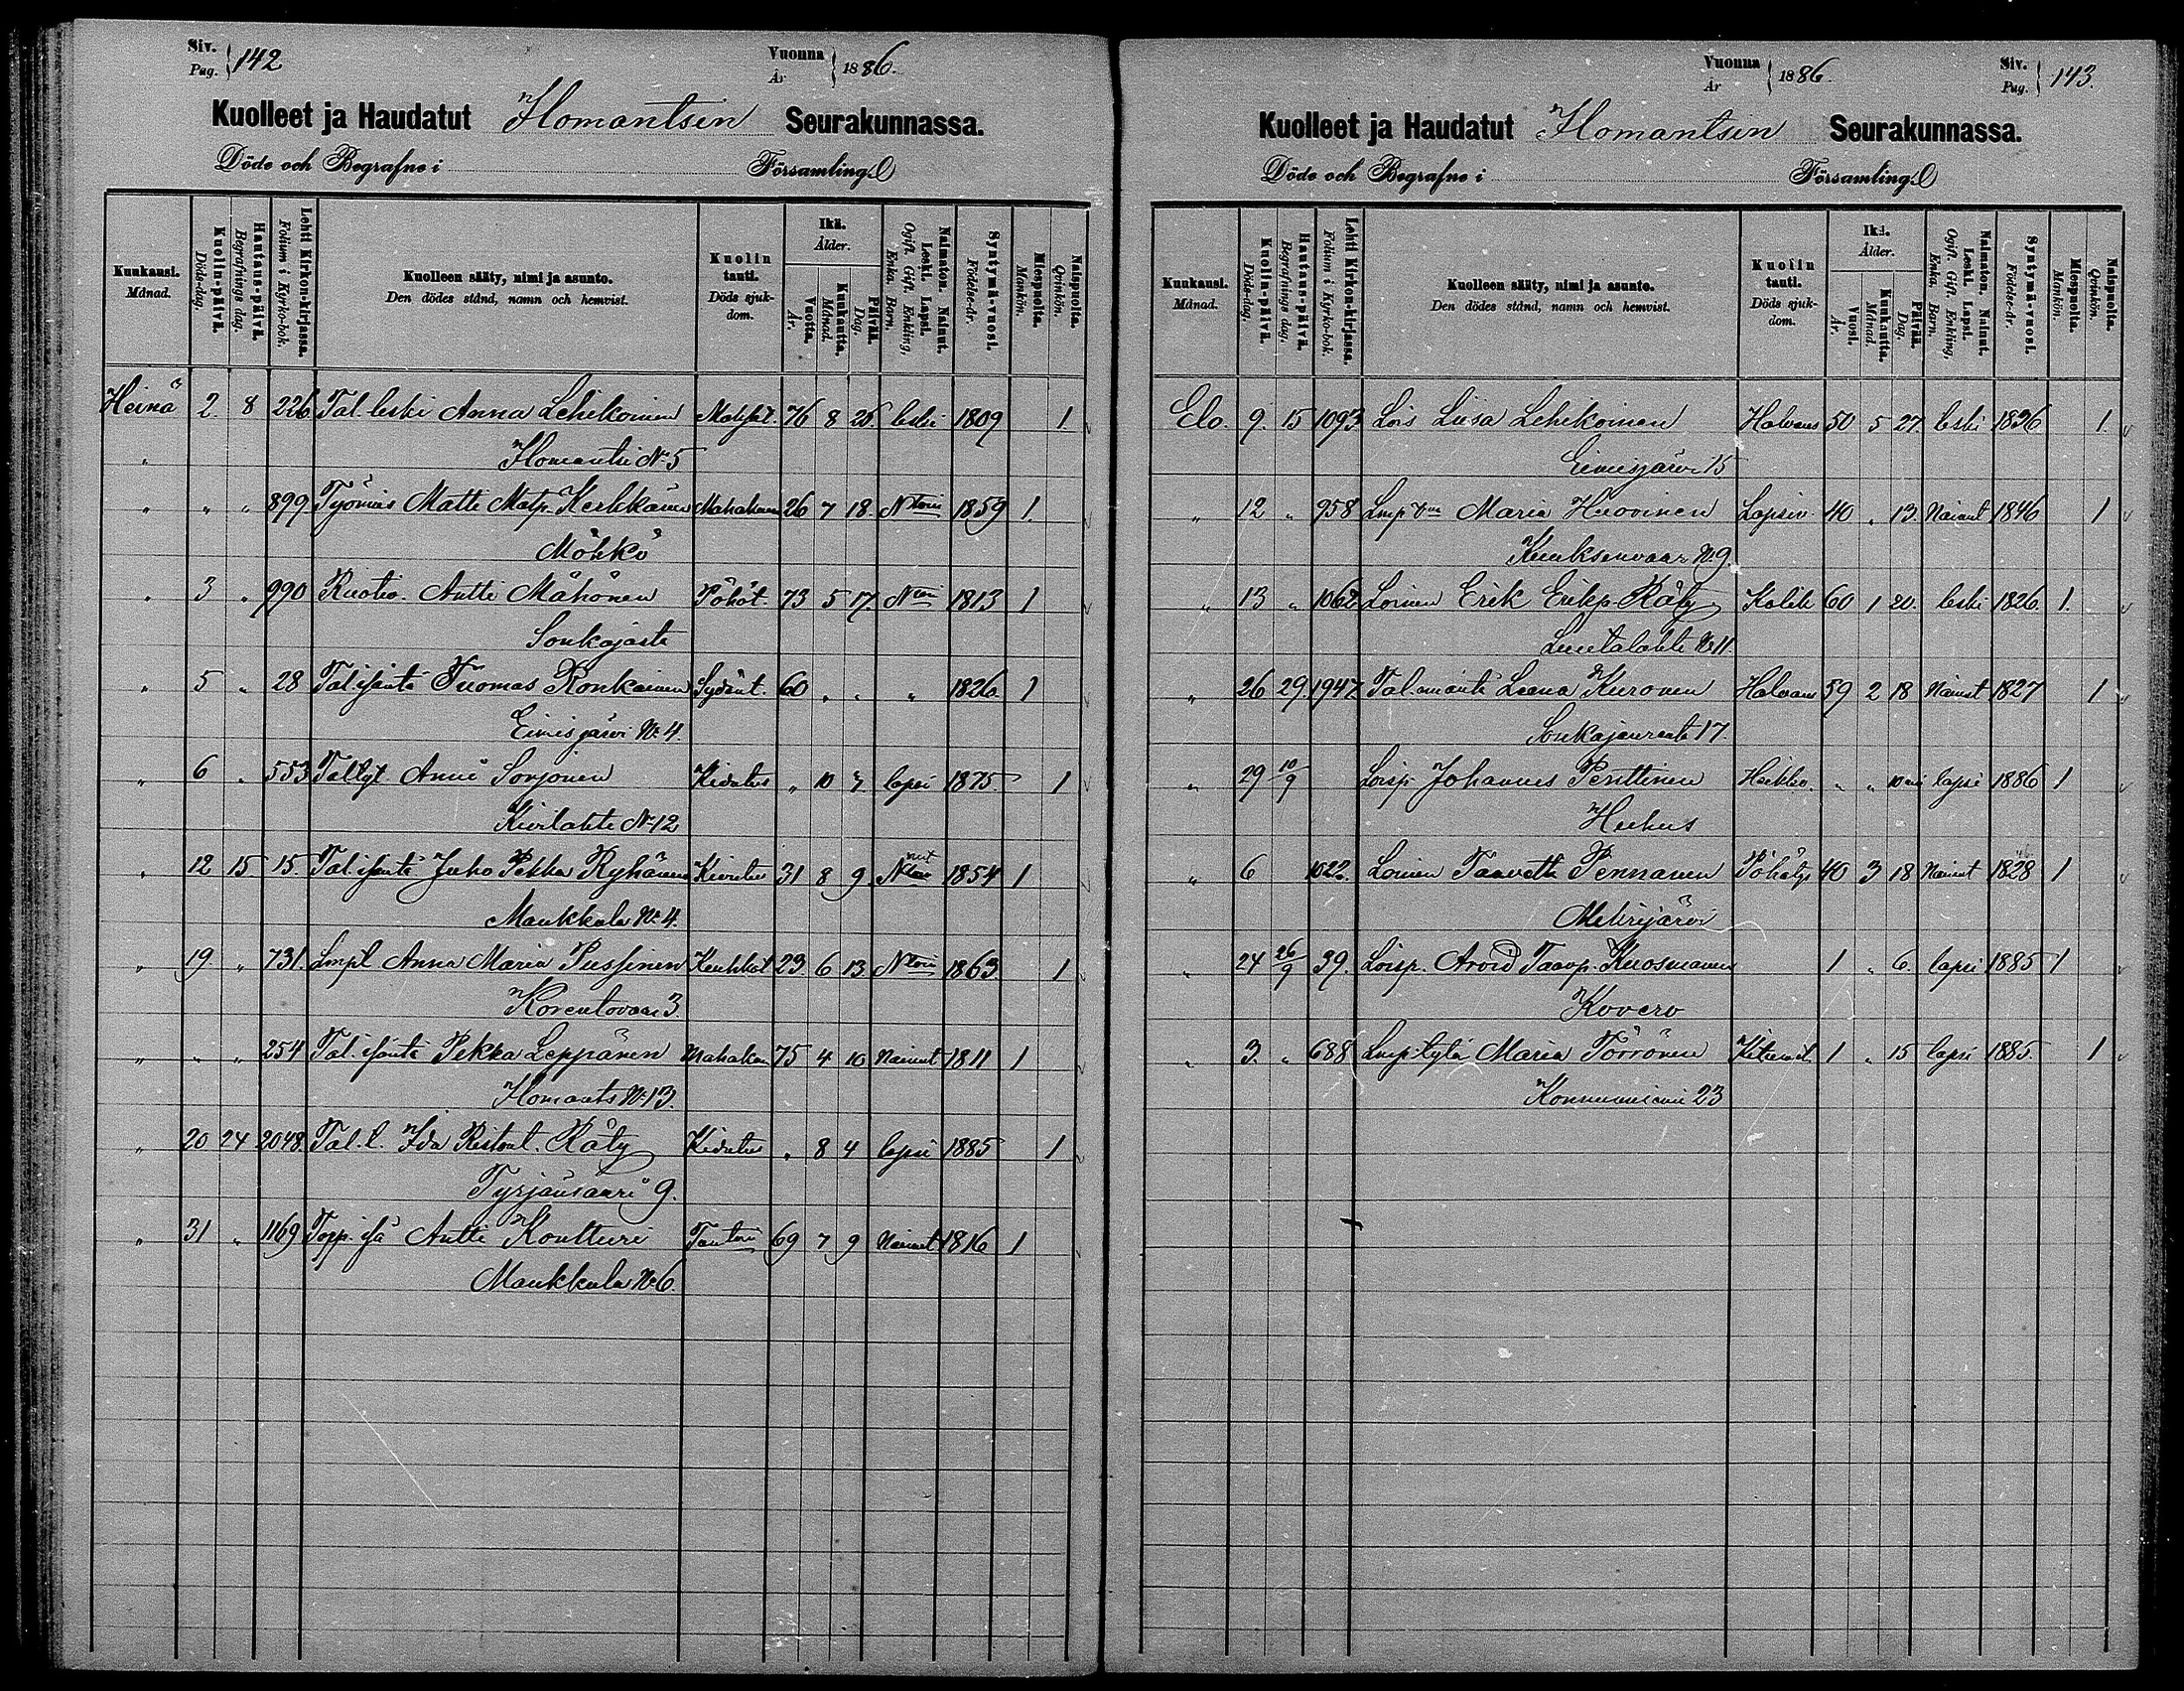 Siv. Pag. 142
Vuonna År 1886.
Kuolleet ja Haudatut Ilomantsin Seurakunnassa.
Döde och Begrafne i Församling.
Kuukausi. Månad.
Kuolin-päivä. Döds-dag.
Hautaus-päivä. Begrafnings dag.
Lehti Kirkon-kirjassa. Folium i Kyrko-bok.
Kuolleen sääty, nimi ja asunto. Den dödes stånd, namn och hemvist.
Kuolin tauti. Döds sjukdom.
Ikä. Ålder.
Vuotta. År.
Kuukautta. Månad.
Päivää. Dag.
Naimaton. Nainut. Leski. Lapsi. Ogift. Gift. Enkling. Enka. Barn.
Syntymä-vuosi. Födelse-år.
Miespuolta. Mankön.
Naispuolta. Qvinkön.
Heinä 2. 8 226 Tal. leski Anna Lehikoinen 76 8 26. leski 1809 1.
" Ilomantsi No 5
" " " 899 Työmies Matti Matp. Kerkkänen 26 7 18. 1859 1.
Möhkö
" 3 " 990 Ruotio. Antti Mähönen Pöhöt. 73 5 17. 1813 1
Sonkajasta
" 5 " 28 Tal. isäntä Tuomas Ronkainen Sydänt. 60 " " " 1826 1
Eimisjärvi No 4.
" 6 " 553 Tal tyt Anni Sorjonen Kivutus " 10 7. lapsi 1875 1
Kivilahti No 12
" 12 15 15. Tal. isäntä Juho Pekka Ryhänen Kivutus 31 8 9 1854 1
Maukkula No 4.
" 19 " 731. Lmpl Anna Maria Pussinen Keuhkot 23 6 13 1863 1
Korentovaara 3.
" " " 254 Tal. isäntä Pekka Leppänen Mahakau 75 4 10 Nainut 1811 1
Ilomants No 13.
" 20 24 2048. Tal. l. Ida Ristont. Räty Kivutus " 8 4 lapsi 1885 1
Tyrjänsaari 9.
" 31 " 1169 Torp. isä Antti Kontturi 69 7 9 Nainut 1816 1
Maukkula No 6.
Vuonna År 1886.
Siv. Pag. 143.
Kuolleet ja Haudatut Ilomantsin Seurakunnassa.
Döde och Begrafne i Församling.
Kuukausi. Månad.
Kuolin-päivä. Döds-dag.
Hautaus-päivä. Begrafnings dag.
Lehti Kirkon-kirjassa. Folium i Kyrko-bok.
Kuolleen sääty, nimi ja asunto. Den dödes stånd, namn och hemvist.
Kuolin tauti. Döds sjukdom.
Ikä. Ålder.
Vuosi. År.
Kuukautta. Månad.
Päivää. Dag.
Naimaton. Nainut. Leski. Lapsi. Ogift. Gift. Enkling. Enka. Barn.
Syntymä-vuosi. Födelse-år.
Miespuolta. Mankön.
Naispuolta. Qvinkön.
Elo. 9. 15 1093 Lois Liisa Lehikoinen Halvaus 50 5 27. leski 1836 1.
Eimisjärvi 15
" 12 " 958 Lmp vm Maria Huovinen Lapsiv. 40 " 13. Nainut 1846 1
Kuuksenvaar No 9.
" 13 " 1062 Loinen Erik Erikp. Räty Kolik 60 1 20. leski 1826. 1.
Luutalahti No 11
" 26 29. 1947 Tal. emäntä Leena Kuronen Halvaus 59 2 18 Nainut 1827 1
Sonkajanranta 17.
" 29 10/9 Loisp. Johannes Penttinen Heikko. " " 10 lapsi 1886 1
Huhus
" 6 1022. Loinen Taavetti Pennanen Pöhöty 40 3 18 Nainut 1828 1
Mekrijärvi
" 24 26/9 39. Loisp. Arvid Taavp. Kuosmanen 1 " 6. lapsi 1885 1
Kovero
" 3. " 688 Lmp. tytär Maria Törrönen 1 " 15 lapsi 1885. 1
Konnunniemi 23